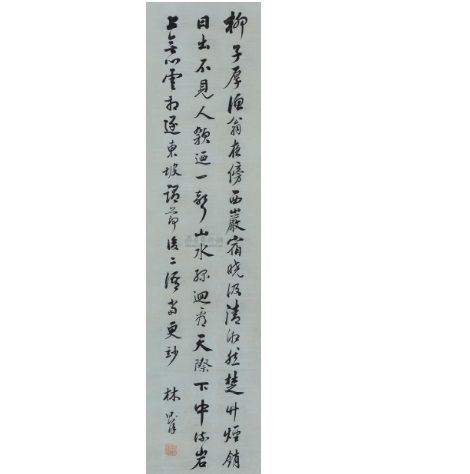 柳子厚漁翁夜傍西巖宿曉汲清湘然楚竹煙銷
日出不見人欸迺一聲山水綠迴看天際下中流岩
上無心雲相逐東坡謂節後二語當更妙
林